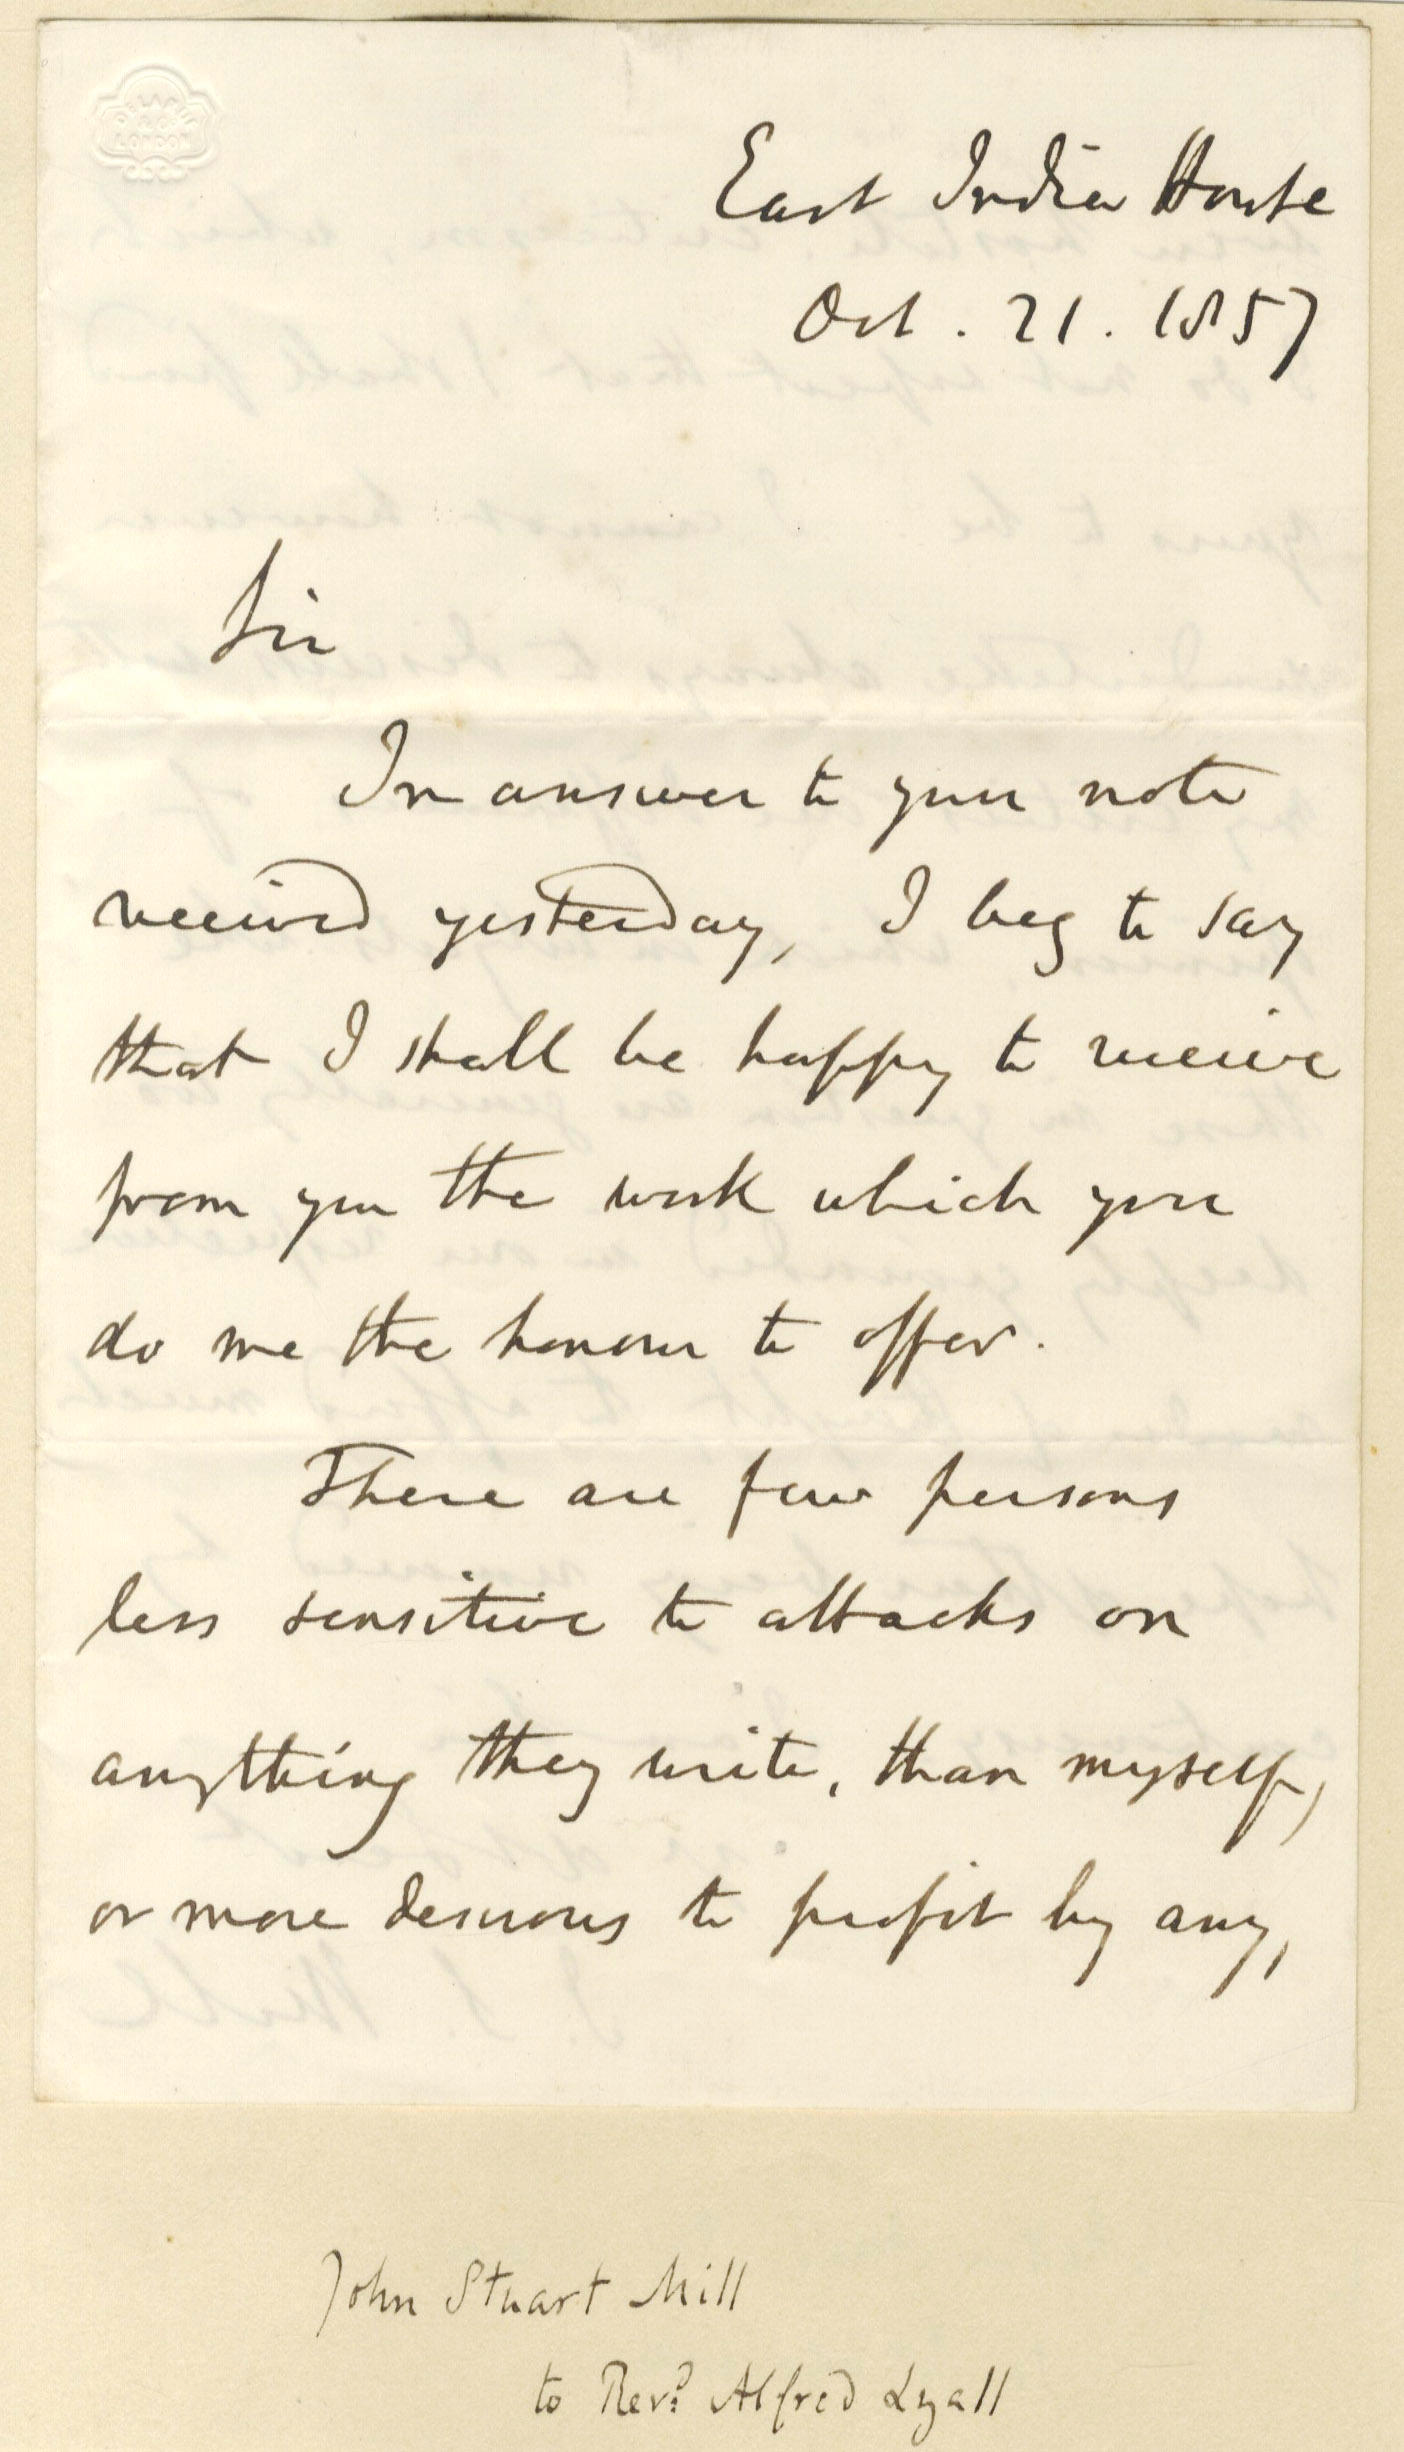 DE LA RUE
& CO
LONDON
East India House
Oct. 21. 1857
Sir
In answer to your note
received yesterday, I beg to say
that I shall be happy to receive
from you the work which you
do me the honour to offer.
There are few persons
less sensitive to attacks on
anything they write, than myself,
or more desirous to profit by any,
John Stuart Mill
to Revd. Alfred Lyall